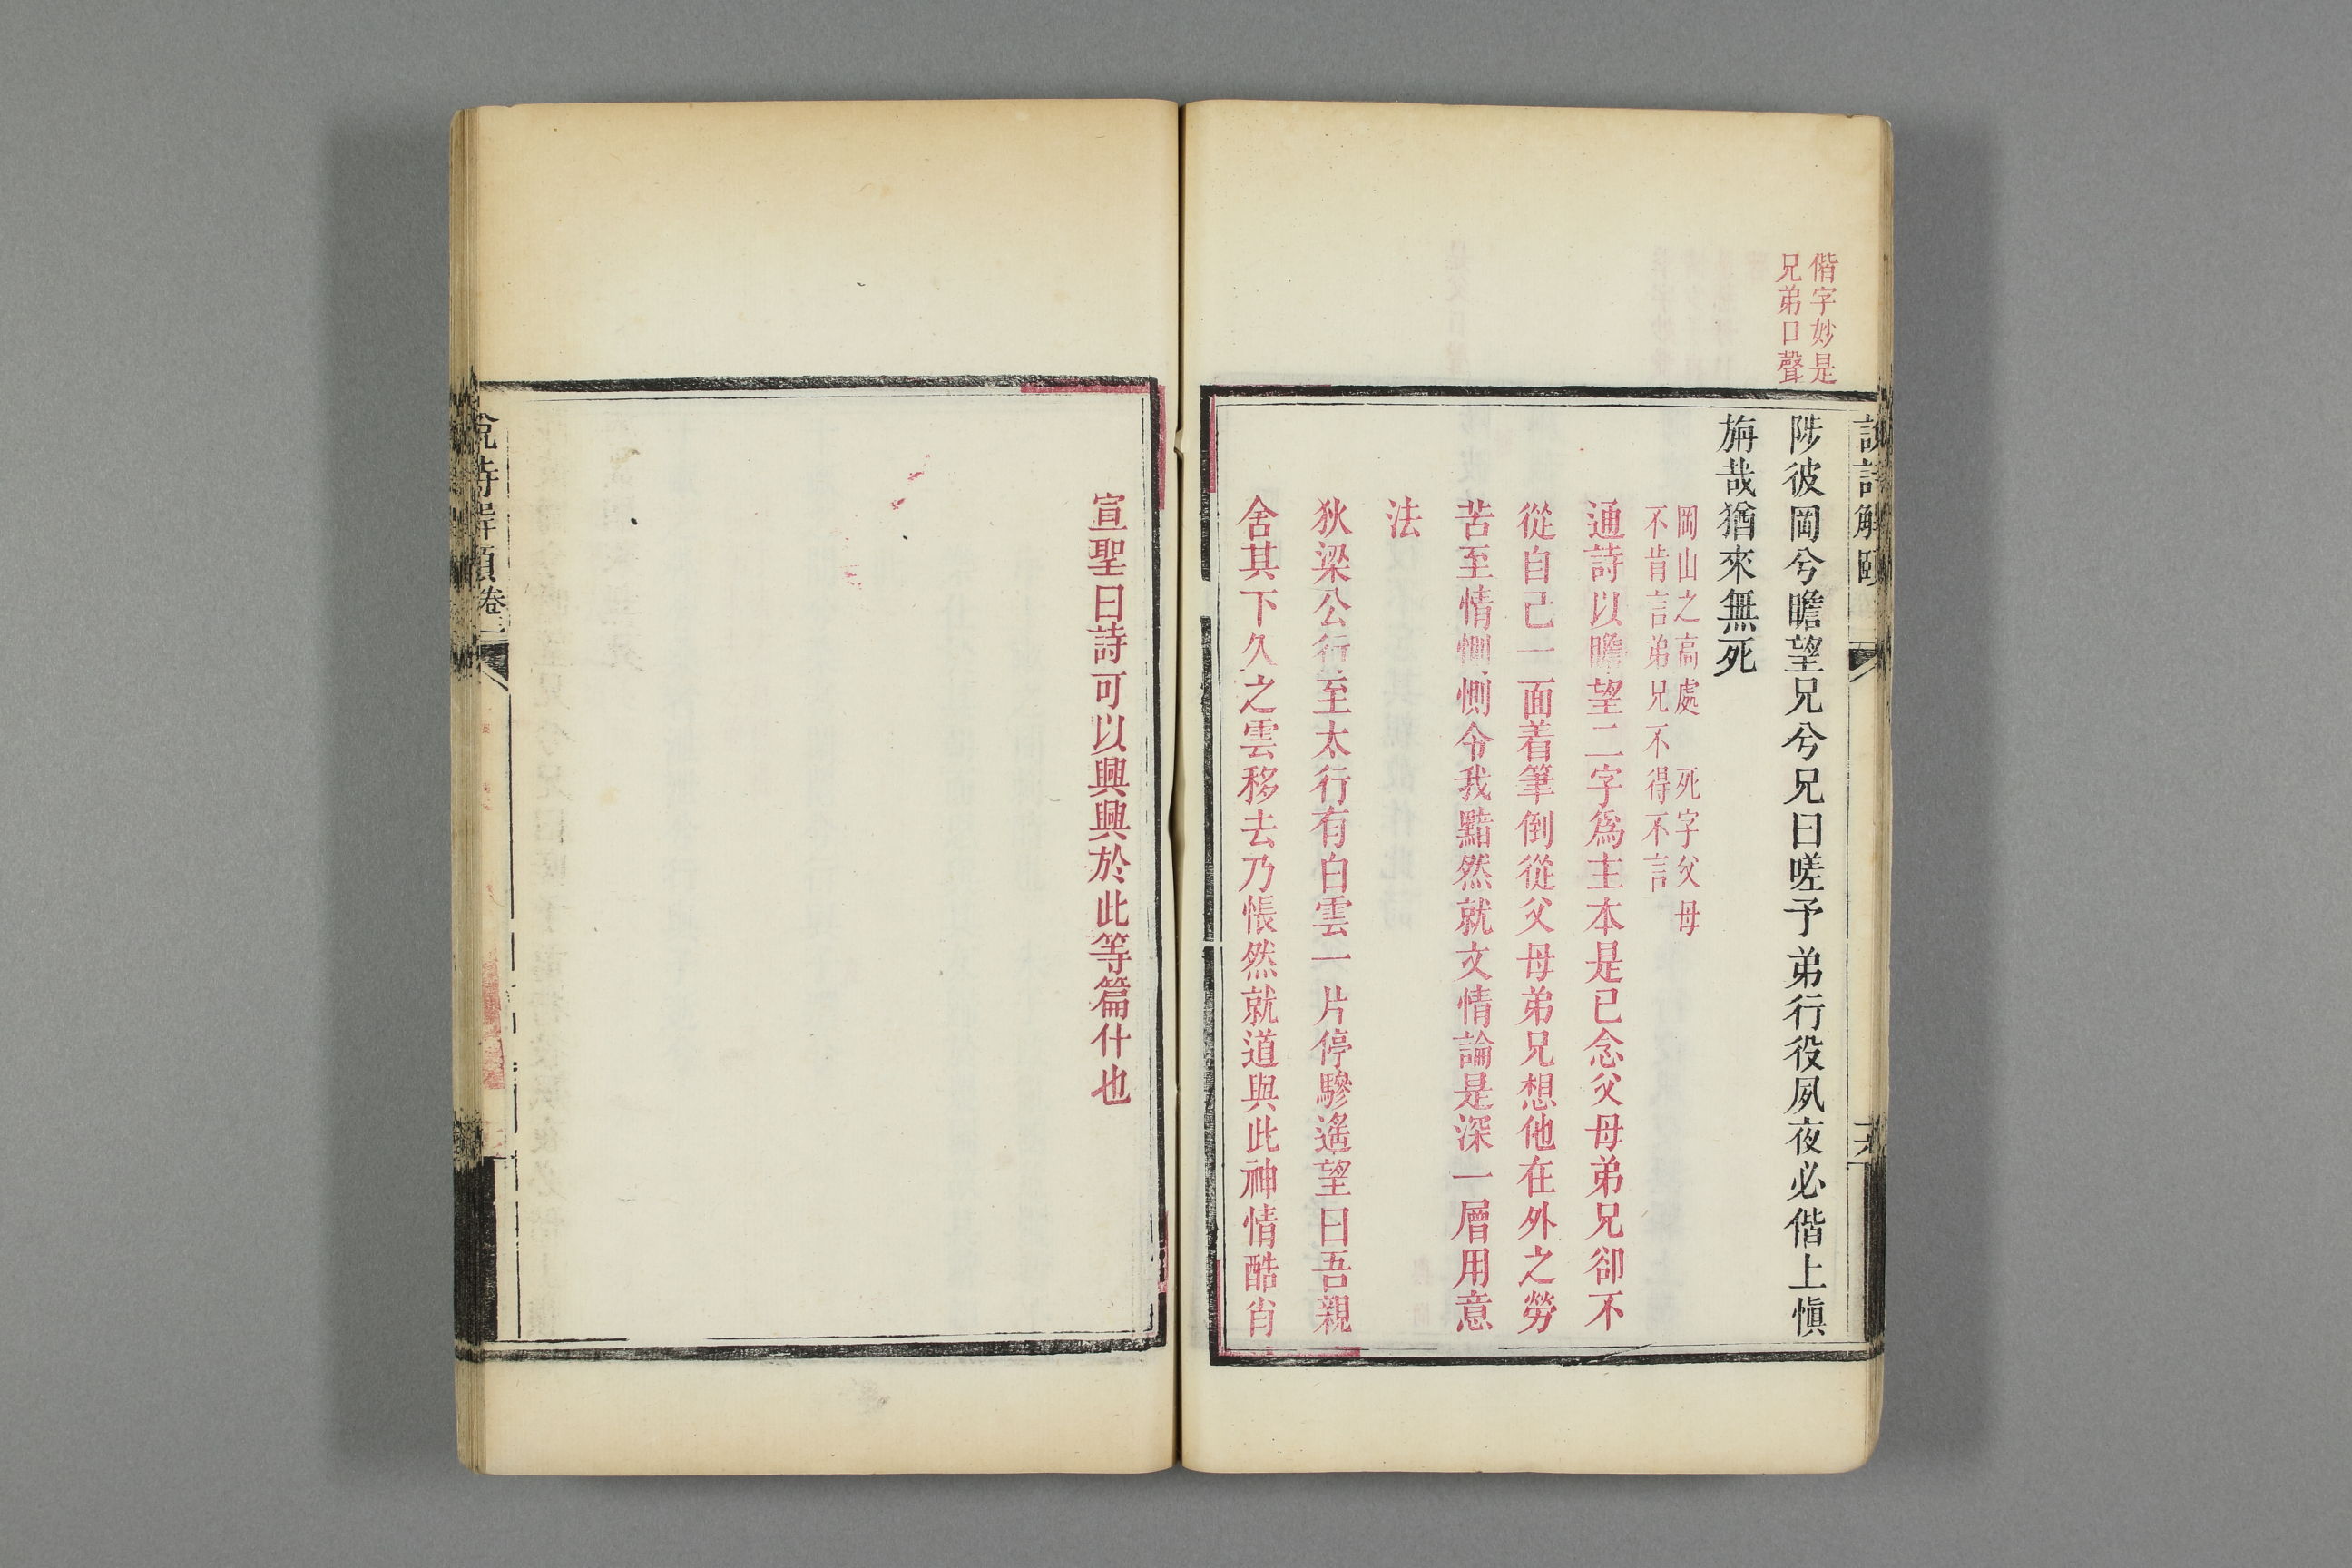 說詩解頤
六
偕字妙是
兄弟口聲
陟彼岡兮瞻望兄兮兄曰嗟予弟行役夙夜必偕上愼
旃哉猶來無死
岡山之高處　死字父母
不肯言弟兄不得不言
通詩以瞻望二字爲主本是已念父母弟兄卻不
從自己一面着筆倒從父母弟兄想他在外之勞
苦至情惻惻令我黯然就文情論是深一層用意
法
狄梁公行至太行有白雲一片停驂遙望曰吾親
舍其下久之雲移去乃悵然就道與此神情酷肖
宣聖曰詩可以興興於此等篇什也
說詩解頤卷一